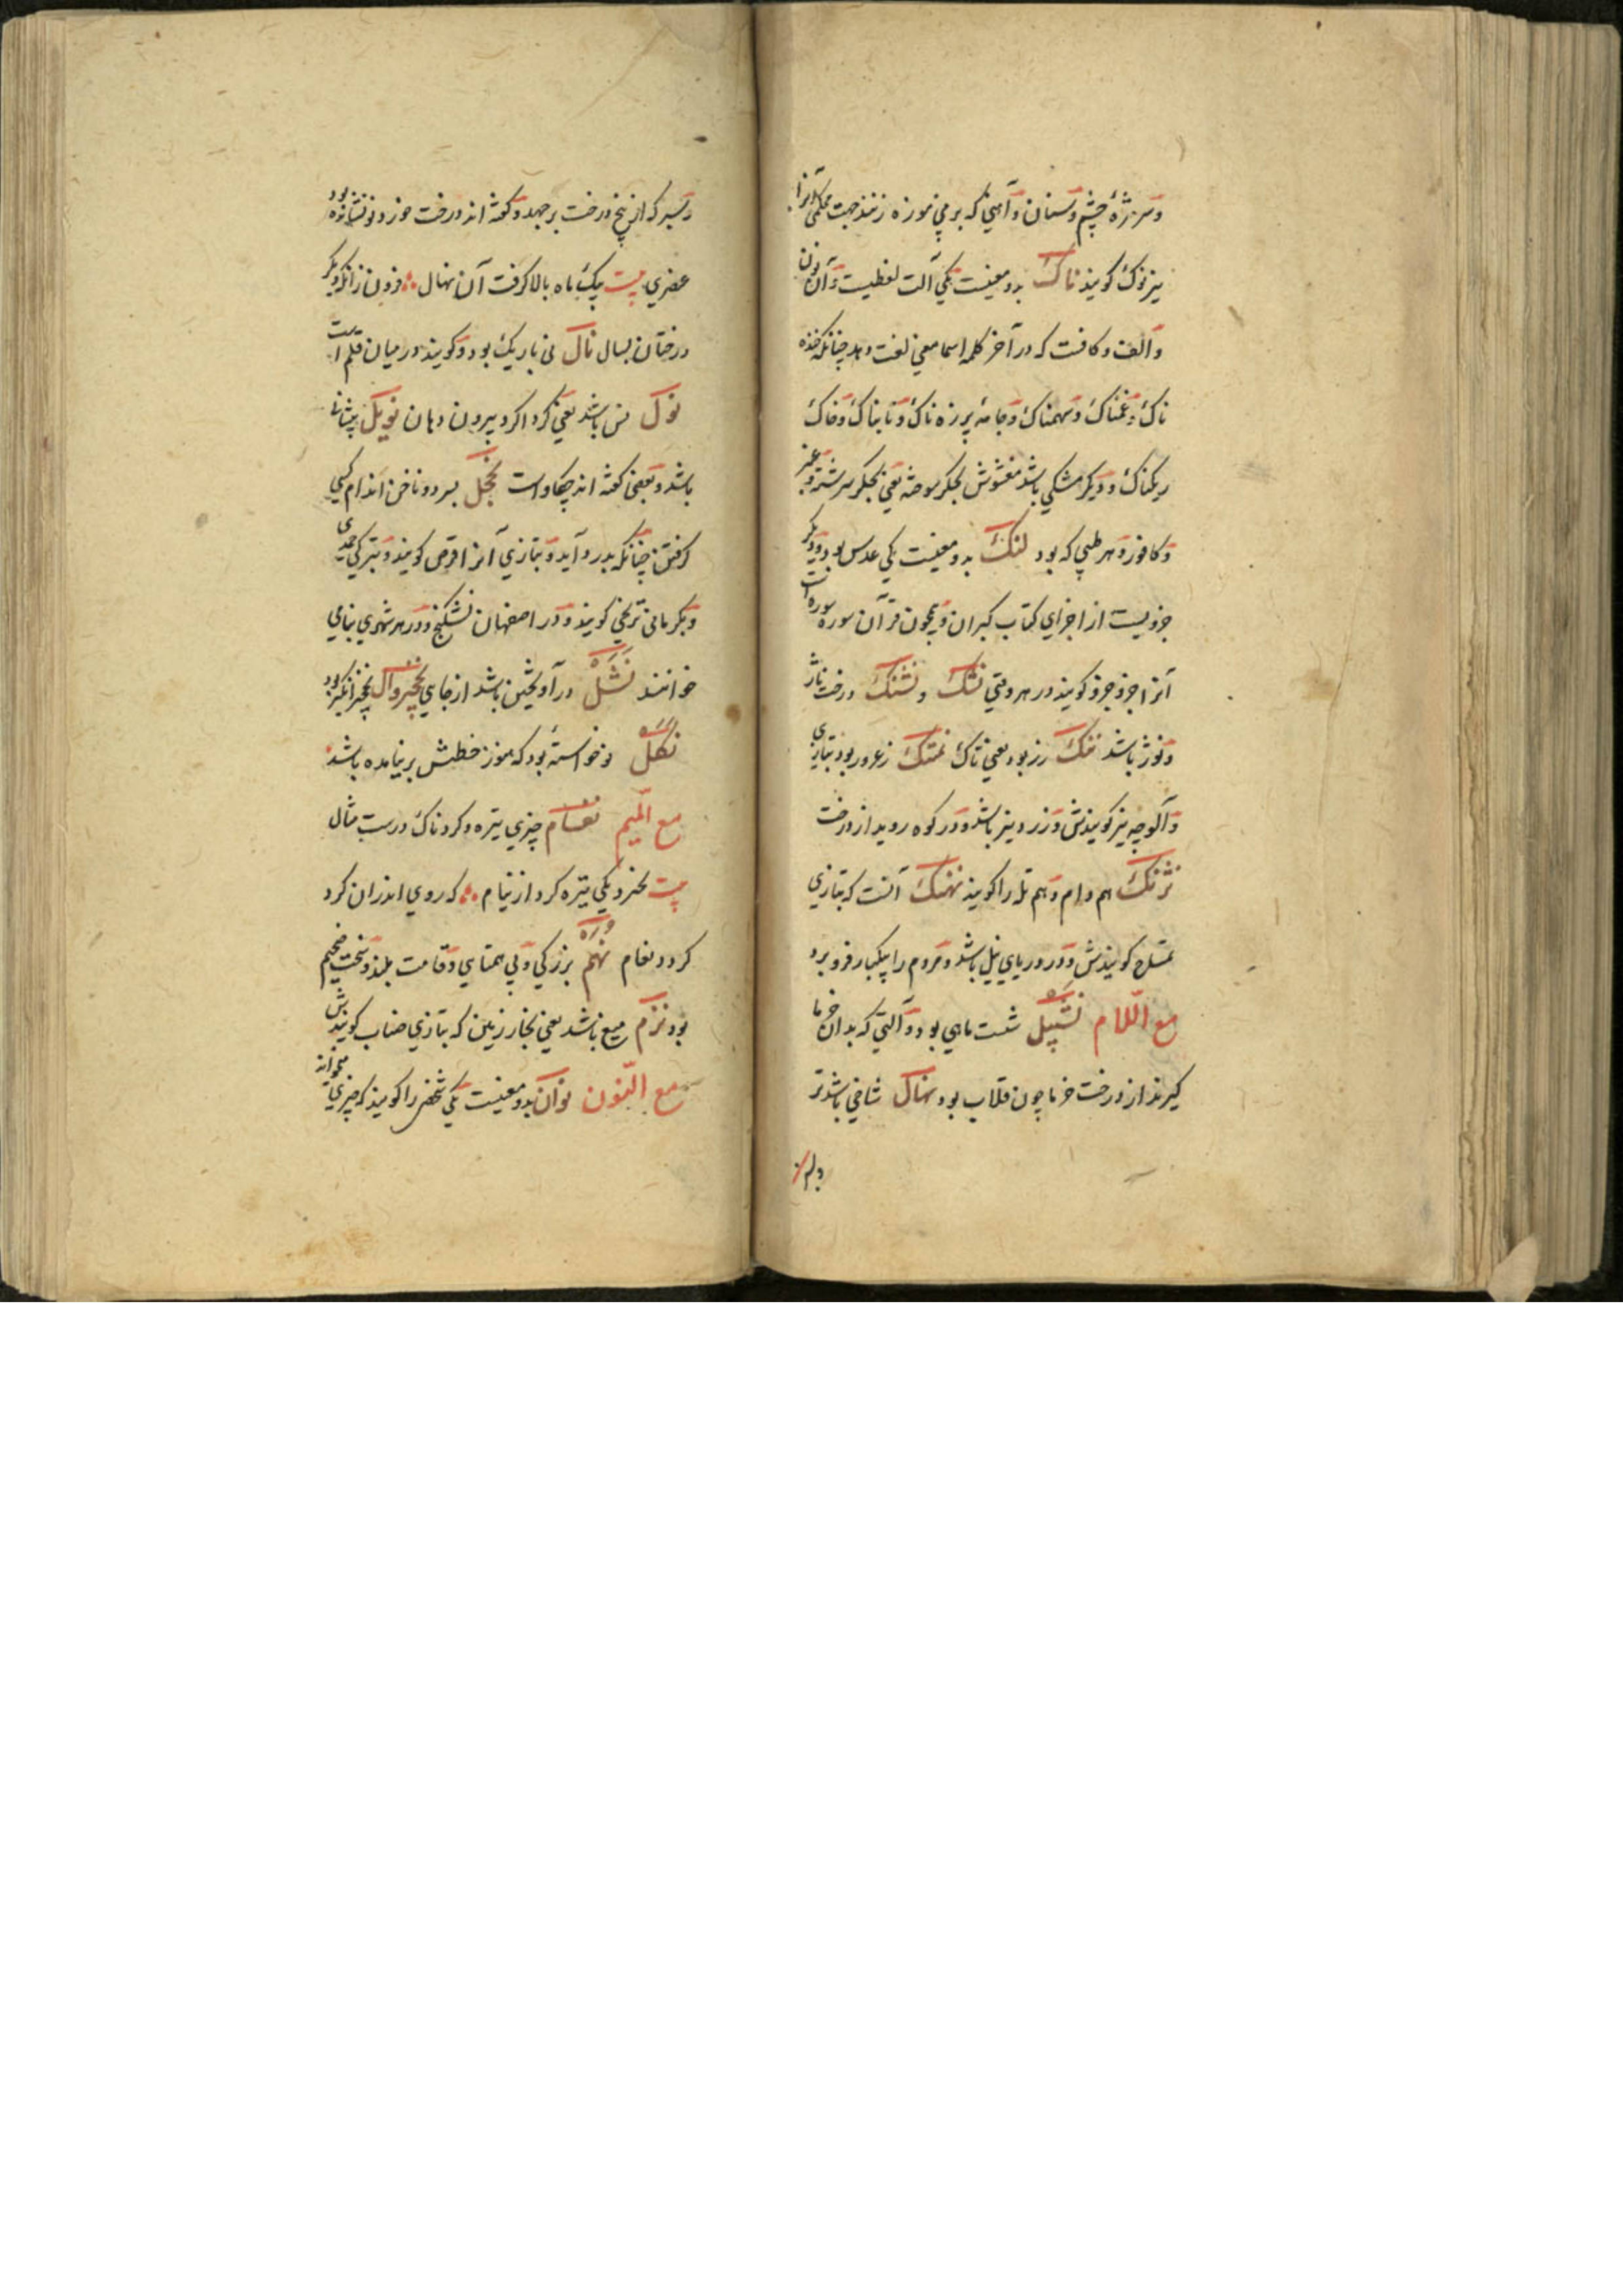 و سر مژهٔ چشم و سنان و آهنی که بر می موزه زنند جهت محکمی آنرا
نیز نوک گویند ناک بدو معنیست یکی آلت لفظیست و آن نون
و الف و کافست که در آخر کلمه اسما معنی لغت دهد چنانکه خنده
ناک و غمناک و سهمناک و جامهٔ پرزه ناک و تابناک و خاک
ریگناک و دیگر مشکی باشد مغشوش بجگر سوخته یعنی بجگر سرشته و عنبر
و کافور و هر طیبی که بود لنک بدو معنیست یکی عدس بود و دیگر
جزویست از اجزای کتاب کبران و همچون قرآن سوره سوره است
آنرا جزو جزو گویند در هر وقتی نشک و نشنک درخت ناژ
و نوژ باشد ننک رز بود یعنی تاک نمتک زعرور بود بتازی
و آلوچه نیز گویندش و زرد نیز باشد و در کوه روید از درخت
نژنک هم دام و هم تله را گویند نهنک آنست که بتازی
تمساح گویندش و در دریای نیل باشد و مردم را بیکبار فرو برد
مع اللام نشپیل شست ماهی بود و آلتی که بدان خرما
گیرند از درخت خرما چون قلاب بود نهال شاخی باشد تر
و بسر که از بیخ درخت برجهد و گفته اند درخت خرد و نو نشانده بود
عنصری بیت یک ماه بالا گرفت آن نهال فزون زانکه دیگر
درختان بسال نال نی باریک بود و گویند در میان قلم است
نول نس باشد یعنی گرد اگرد بیرون دهان نویل پیشانی
باشد و بعضی گفته اند چکاد است نخجل بسر دو ناخن اندام کسی
گرفتن چنانکه بدرد آید و بتازی آنرا قرص گویند و بترکی
و بکرمانی گویند و در اصفهان نشکنج و در هر شهری بنامی
خوانند نشل درآویختن باشد از جایی نخچیروال نخچیر انگیز بود
نکل نو خواسته بود که هنوز خطش برنیامده باشد
مع المیم نغام چیزی تیره و گردناک درست مثال
بیت بخیزد یکی تیره گرد از نیام که روی اندران گرد
گردد نغام نهم بزرگی و بی همتایی و قامت بلند و سخت ضخیم
بود نژم میغ باشد یعنی بخار زمین که بتازی ضباب گویندش
مع النون نوان بدو معنیست یکی شخص را گویند که چیزی میخواند